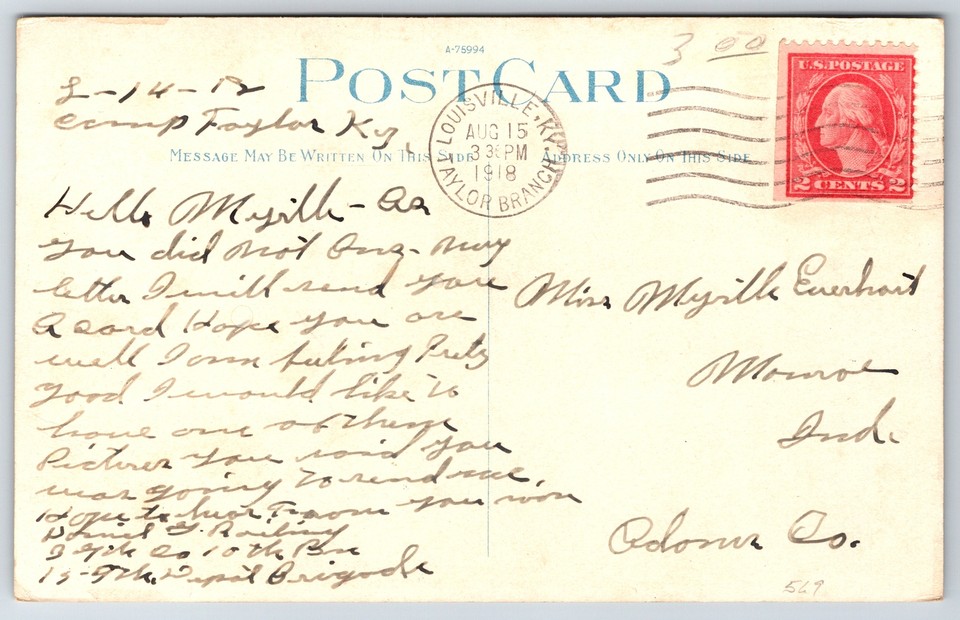 A-75994
POST CARD
3 00
U.S. POSTAGE
2 CENTS 2
LOUISVILLE, KY.
AUG 15
3 30 PM
1918
TAYLOR BRANCH
MESSAGE MAY BE WRITTEN ON THIS SIDE
ADDRESS ONLY ON THIS SIDE
8-14-18
Camp Taylor Ky.
Hello Myrille - As
you did not Ans. my
letter I will send you
A card Hope you are
well I am feeling Prety
good I would like to
have one of them
Picturs you said you
was going to send me.
Hope to hear From you soon
Daniel
Co 10th Bn
159th. Depot Brigade
Miss Myrille Everhart
Monroe
Ind.
Adams Co.
569